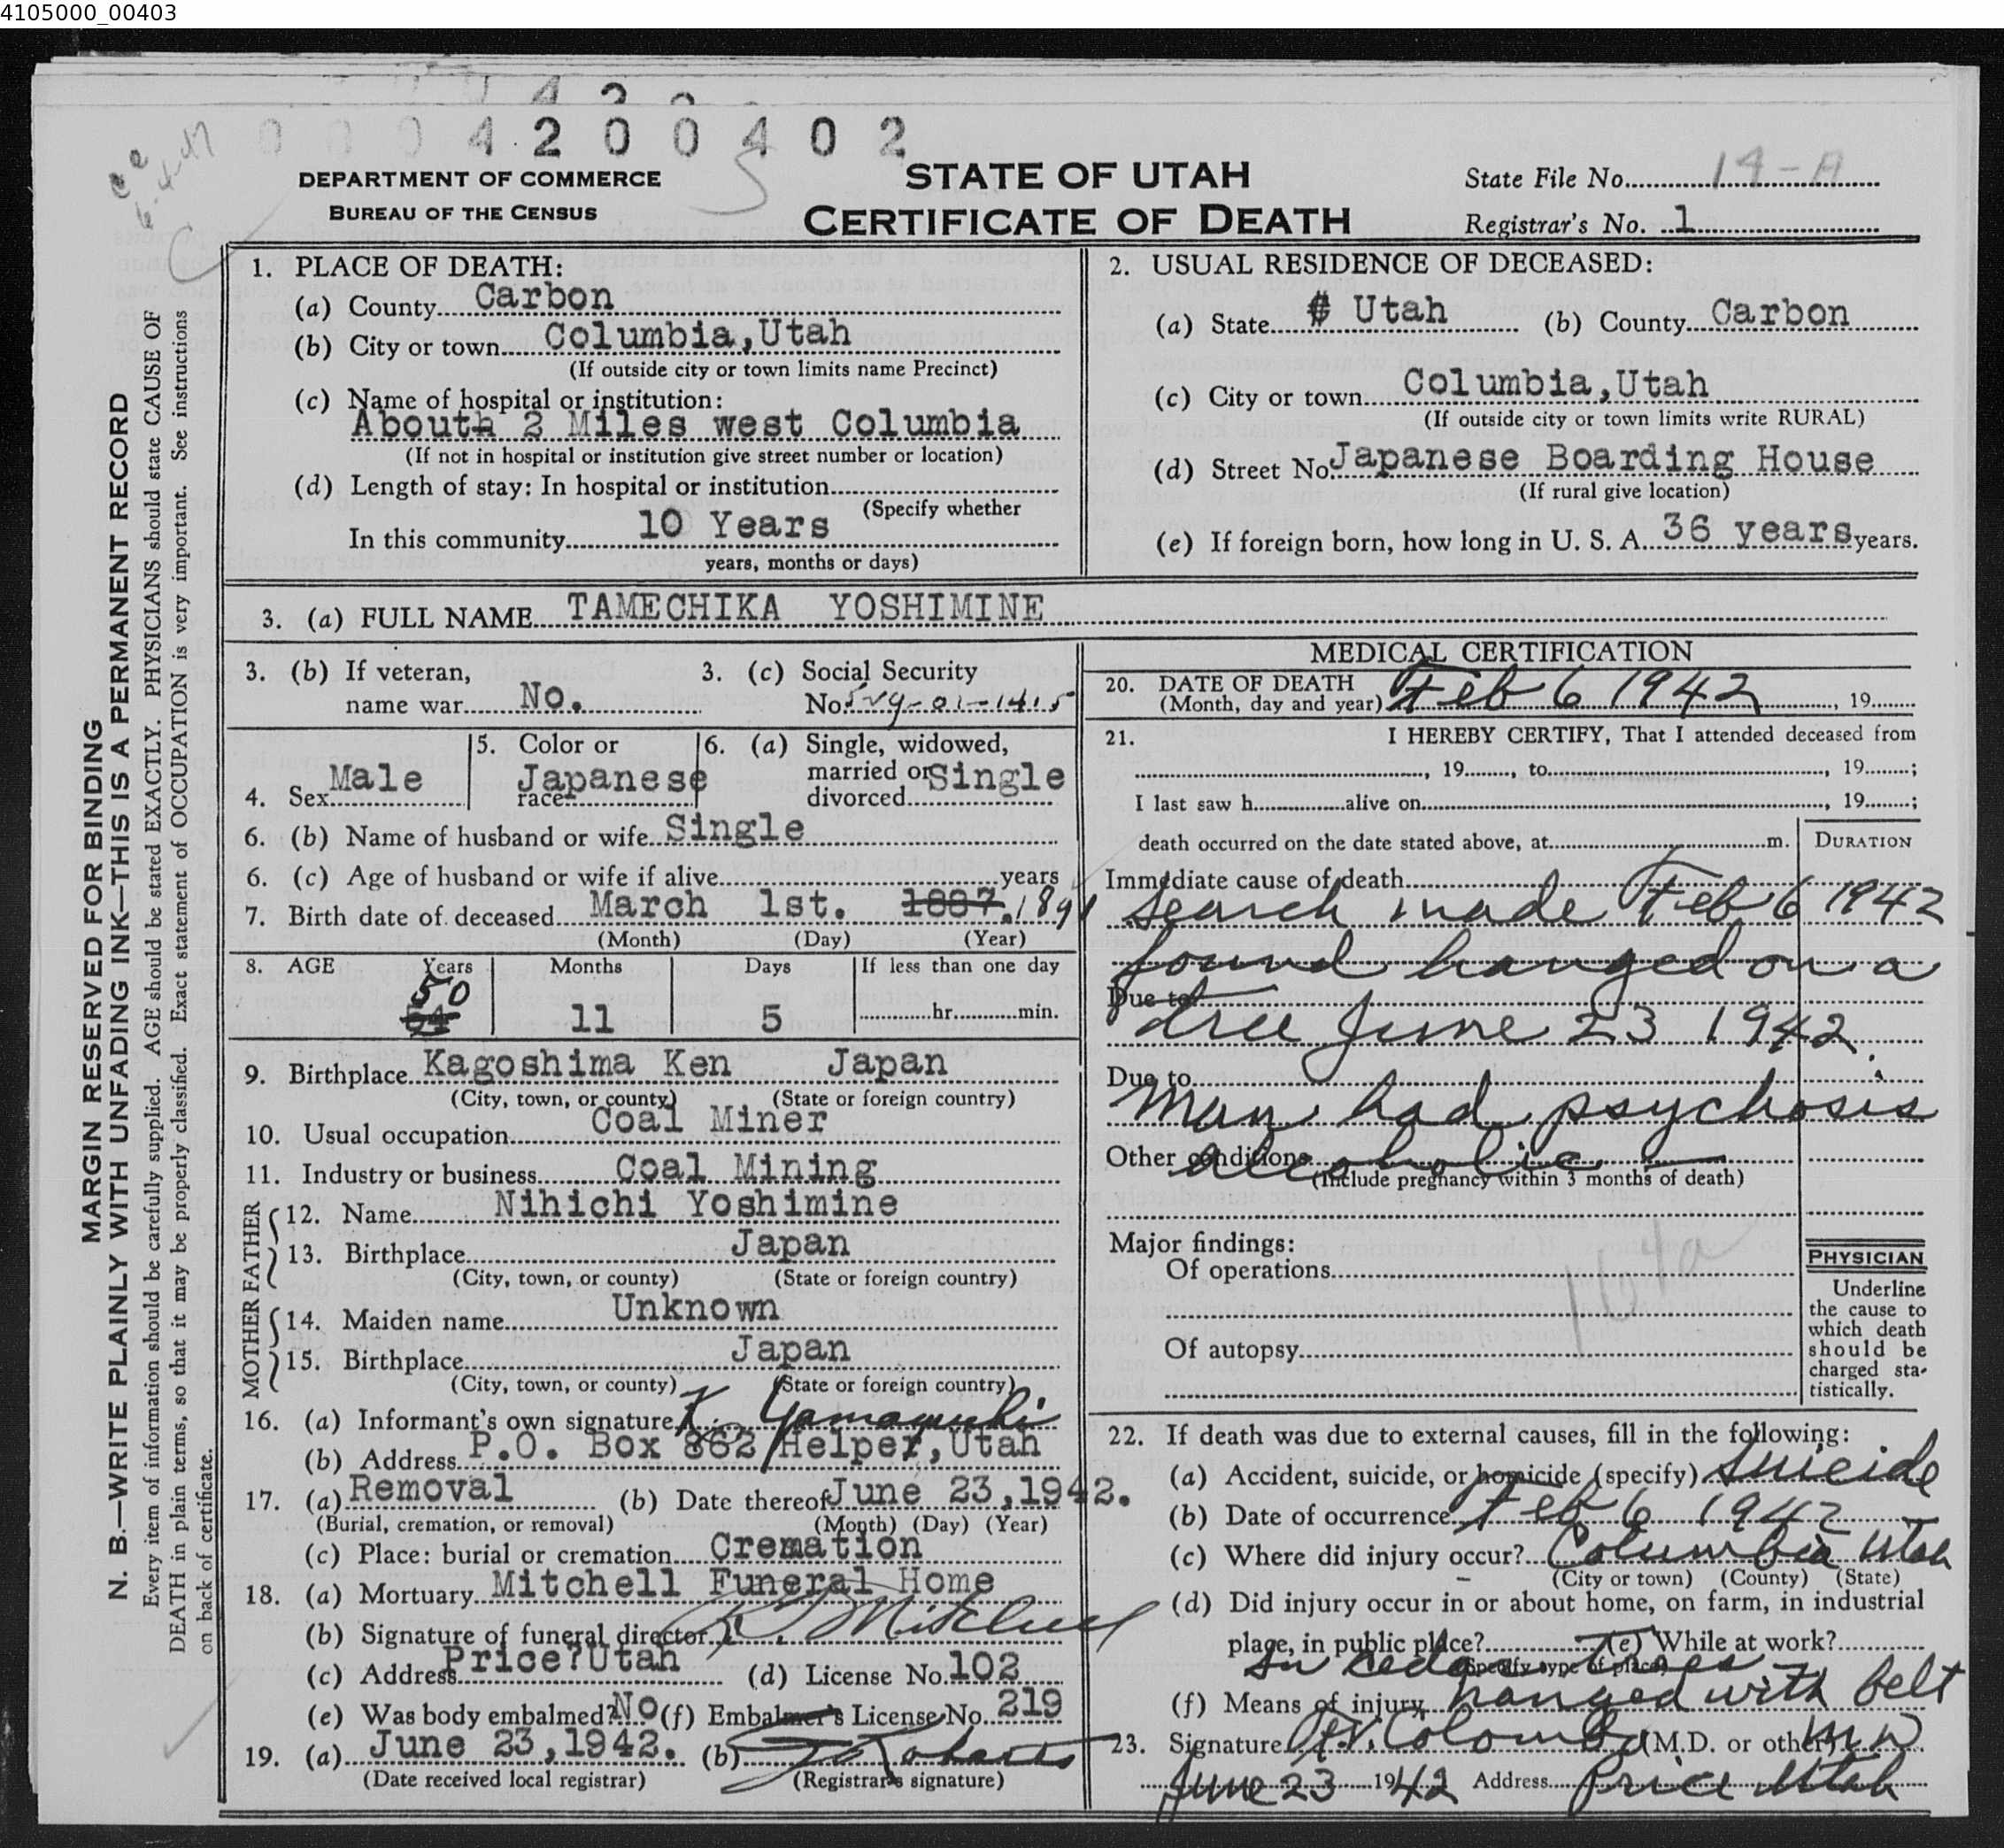 4105000_00403
0004200402
DEPARTMENT OF COMMERCE
BUREAU OF THE CENSUS
STATE OF UTAH
CERTIFICATE OF DEATH
State File No. 14-A
Registrar's No. 1
MARGIN RESERVED FOR BINDING
N. B.—WRITE PLAINLY WITH UNFADING INK—THIS IS A PERMANENT RECORD
Every item of information should be carefully supplied. AGE should be stated EXACTLY. PHYSICIANS should state CAUSE OF
DEATH in plain terms, so that it may be properly classified. Exact statement of OCCUPATION is very important. See instructions
on back of certificate.
1. PLACE OF DEATH:
(a) County Carbon
(b) City or town Columbia,Utah
(If outside city or town limits name Precinct)
(c) Name of hospital or institution:
About 2 Miles west Columbia
(If not in hospital or institution give street number or location)
(d) Length of stay: In hospital or institution
(Specify whether
In this community 10 Years
years, months or days)
2. USUAL RESIDENCE OF DECEASED:
(a) State Utah (b) County Carbon
(c) City or town Columbia,Utah
(If outside city or town limits write RURAL)
(d) Street No. Japanese Boarding House
(If rural give location)
(e) If foreign born, how long in U. S. A. 36 years years.
3. (a) FULL NAME TAMECHIKA YOSHIMINE
3. (b) If veteran, 3. (c) Social Security
name war No. No. 529-01-1415
4. Sex Male 5. Color or race Japanese 6. (a) Single, widowed, married or divorced Single
6. (b) Name of husband or wife Single
6. (c) Age of husband or wife if alive years
7. Birth date of deceased March 1st. 1887. 1891
(Month) (Day) (Year)
8. AGE Years Months Days If less than one day
50
54 11 5 hr. min.
9. Birthplace Kagoshima Ken Japan
(City, town, or county) (State or foreign country)
10. Usual occupation Coal Miner
11. Industry or business Coal Mining
FATHER
12. Name Nihichi Yoshimine
13. Birthplace Japan
(City, town, or county) (State or foreign country)
MOTHER
14. Maiden name Unknown
15. Birthplace Japan
(City, town, or county) (State or foreign country)
16. (a) Informant's own signature K. Yamaguchi
(b) Address P.O. Box 862 Helper,Utah
17. (a) Removal (b) Date thereof June 23,1942.
(Burial, cremation, or removal) (Month) (Day) (Year)
(c) Place: burial or cremation Cremation
18. (a) Mortuary Mitchell Funeral Home
(b) Signature of funeral director Mitchell
(c) Address Price?Utah (d) License No. 102
(e) Was body embalmed? No (f) Embalmer's License No. 219
19. (a) June 23,1942. (b)
(Date received local registrar) (Registrar's signature)
MEDICAL CERTIFICATION
20. DATE OF DEATH
(Month, day and year) Feb 6 1942, 19
21. I HEREBY CERTIFY, That I attended deceased from
, 19 , to , 19 ;
I last saw h alive on , 19 ;
death occurred on the date stated above, at m. DURATION
Immediate cause of death
Search made Feb 6 1942
found hanged on a
Due to
tree June 23 1942.
Due to
Man had psychosis
Other conditions alcoholic
(Include pregnancy within 3 months of death)
Major findings:
Of operations
Of autopsy
164a
PHYSICIAN
Underline
the cause to
which death
should be
charged sta-
tistically.
22. If death was due to external causes, fill in the following:
(a) Accident, suicide, or homicide (specify) Suicide
(b) Date of occurrence Feb 6 1942
(c) Where did injury occur? Columbia Utah
(City or town) (County) (State)
(d) Did injury occur in or about home, on farm, in industrial
place, in public place? (e) While at work?
In cedar trees
(Specify type of place)
(f) Means of injury hanged with belt
23. Signature Colombo (M.D. or other) M D
June 23 1942 Address Price Utah